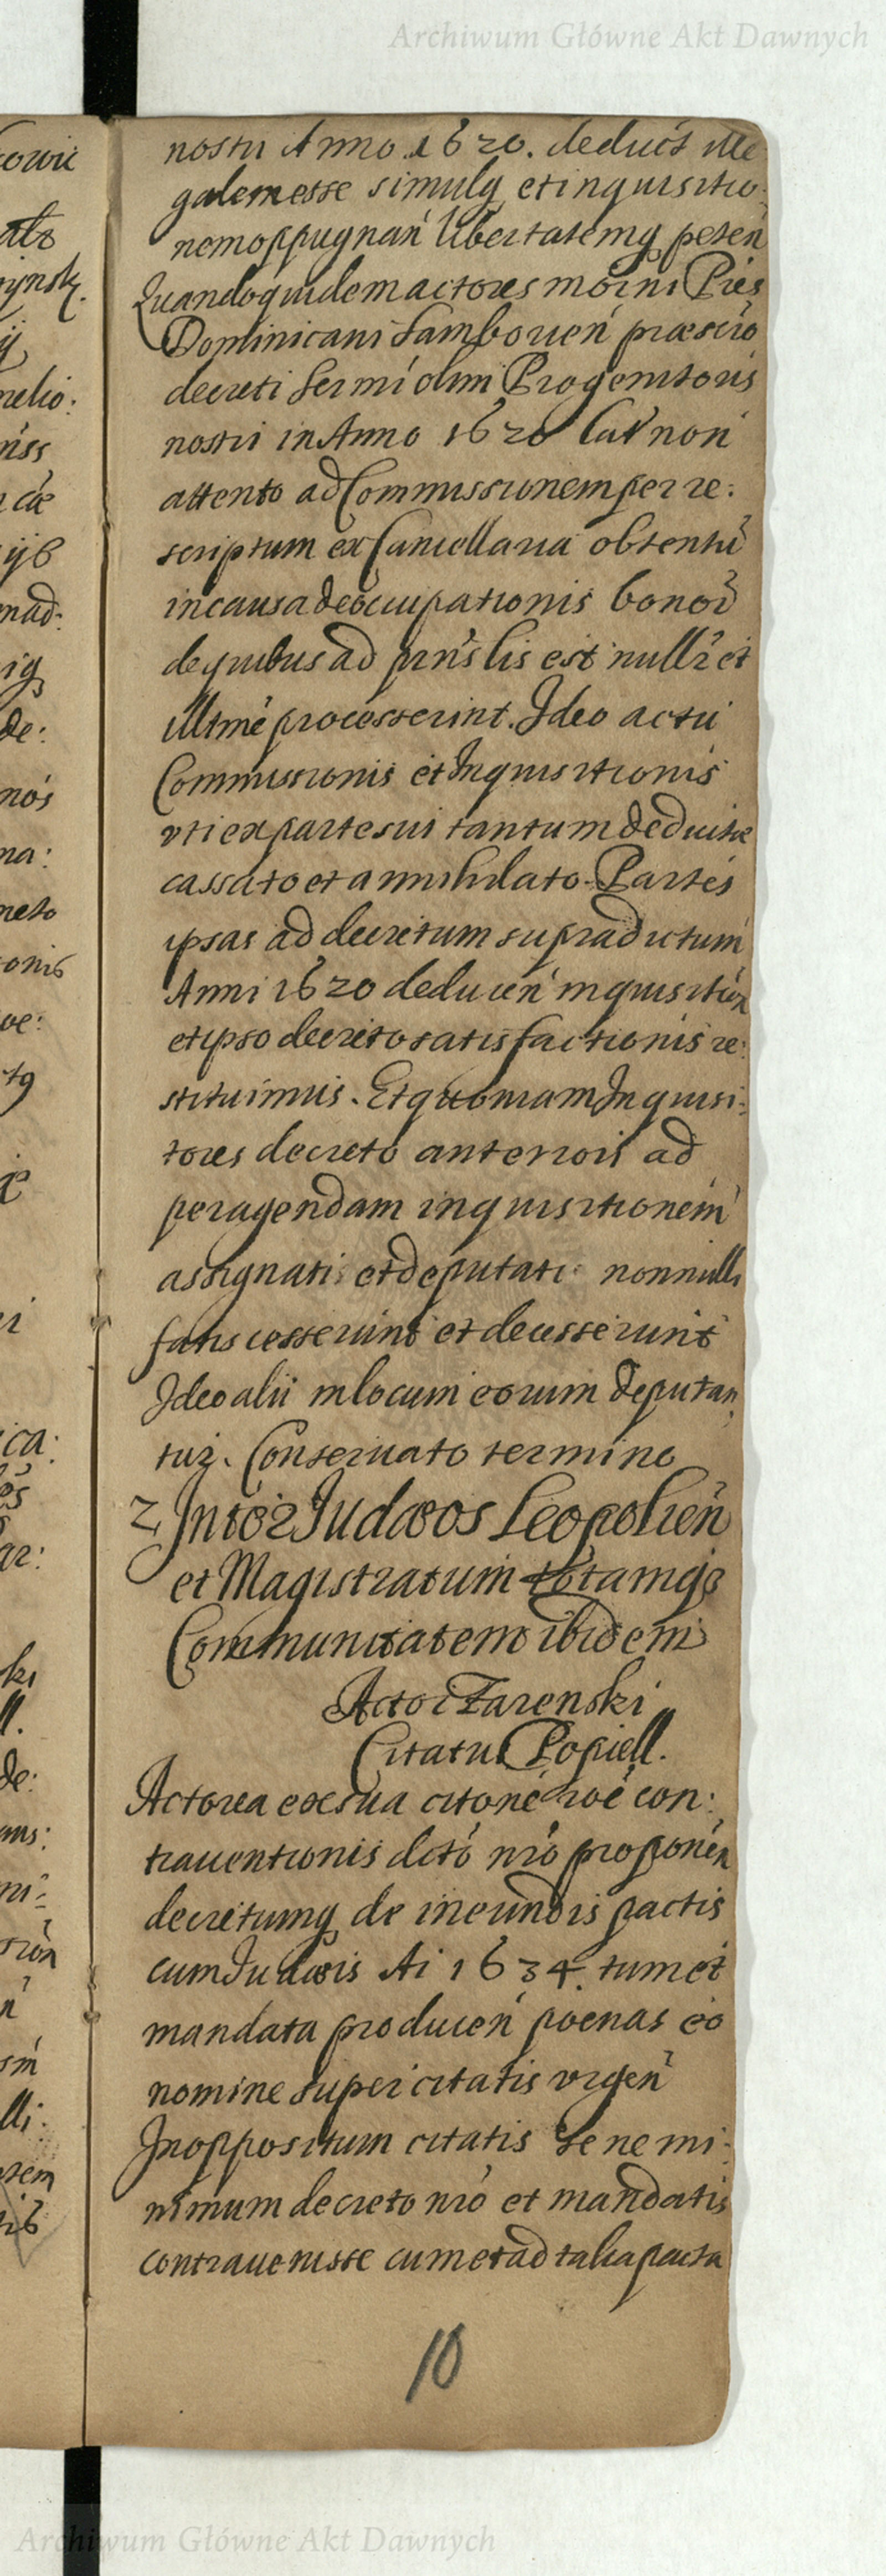 Archiwum Główne Akt Dawnych
nostri Anno 1620. deduct ille
galem esse simulq et inquisitio
nem oppugnań libertatemq peteń
Quandoquidem actores moini Pres
Dominicani Samborień præscito
decreti Sermi olim Progenitoris
nostri in Anno 1620 lat non
attento ad Commissionem per re:
scriptum ex Cancellaria obtentū
in causa de occupationis bonor
de quibus ad prns lis est nullr et
illtmé processerint. Ideo actu
Commissionis et Inquisitionis
vti ex parte sui tantum deducte
cassato et annihilato. Partes
ipsas ad decretum supradictum
Anni 1620 deducen inquisition
et ipso decreto satisfactionis re:
stituimus. Et quoniam Inquisi:
tores decreto anteriori ad
peragendam inquisitionem
assignati et deputati nonnulli
fatis cesserunt et decesserunt
Ideo alii in locum eorum deputan
tur. Conseruato termino
Inter Judæos Leopolień
et Magistratum totamq
Communitatem ibidem
Actor Zarenski
Citatus Popiell.
Actorea ex sua citoné roé con:
trauentionis dctó nró proponen
decretumq de ineundis pactis
cum Judæis Ai 1634. tum et
mandata producen poenas eo
nomine super citatis vrgeń
In oppositum citatis se ne mi:
nimum decreto nró et mandatis
contrauenisse cum et ad talia pacta
10
Archiwum Główne Akt Dawnych